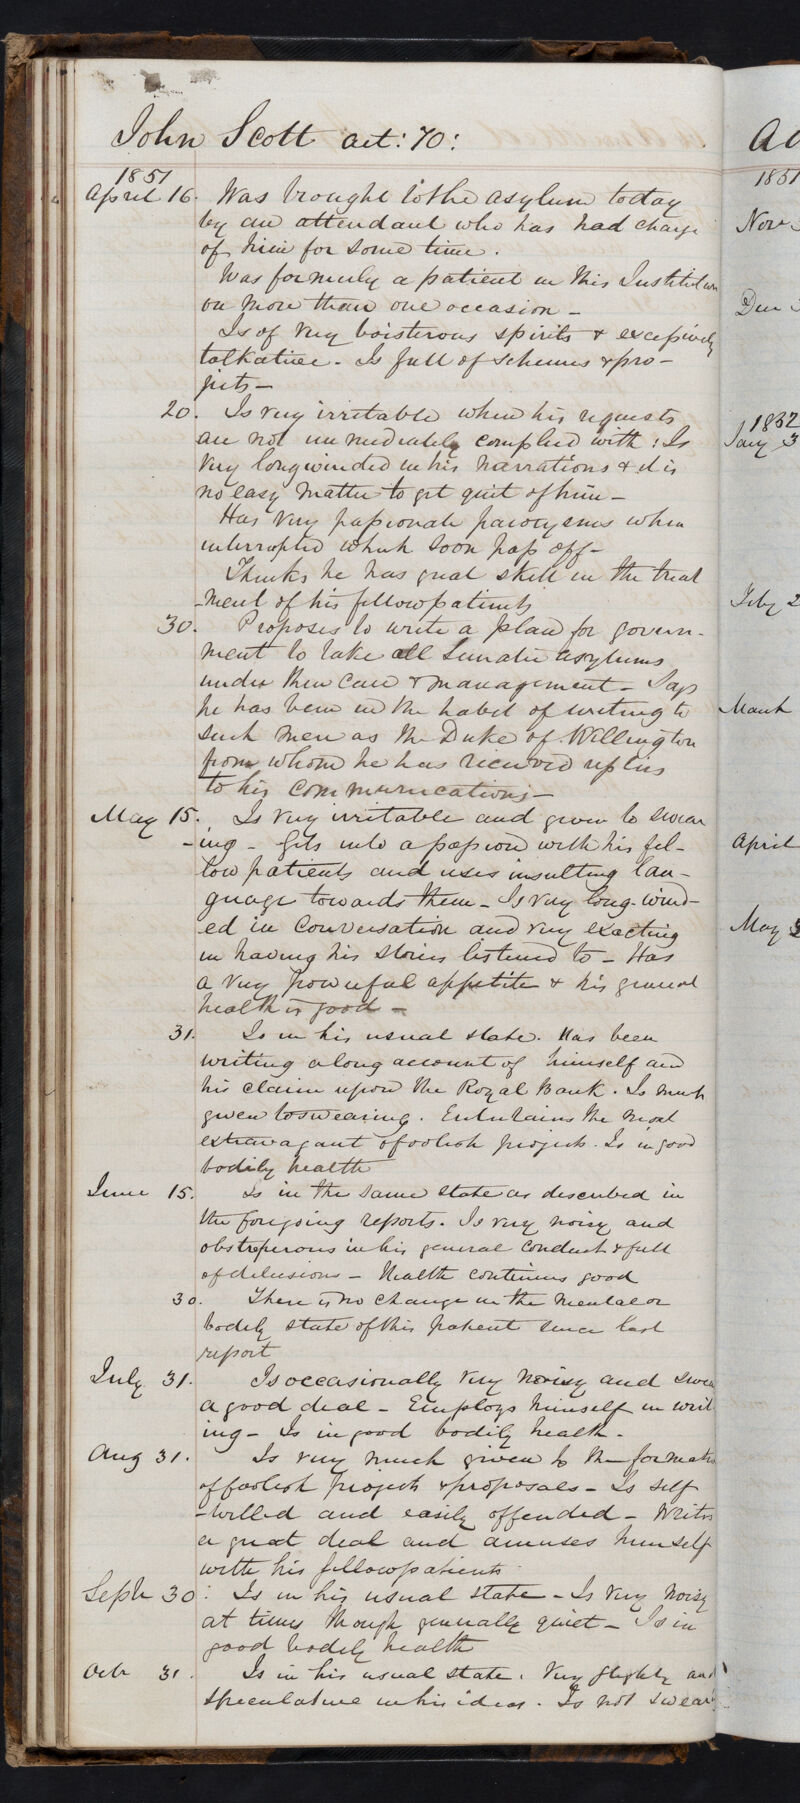 John Scott aet: 70:
1851
April 16. Was brought to the asylum today
by an attendant who has had charge
of him for some time.
Was formerly a patient in this Institution
on more than one occasion -
Is of very boisterous spirits & excessively
talkative. Is full of schemes & pro-
jects -
20. Is very irritable when his requests
are not immediately complied with: Is
very longwinded in his narrations & it is
no easy matter to get quit of him -
Has very passionate paroxysms when
interrupted which soon pass off -
Thinks he has great skill in the treat
-ment of his fellow patients
30. Proposes to write a plan for govern-
ment to take all Lunatic asylums
under their care & management - Says
he has been in the habit of writing to
such men as the Duke of Wellington
from whom he has received replies
to his communications -
May 15. Is very irritable and given to swear
-ing - Gets into a passion with his fel-
low patients and uses insulting lan-
guage towards them - Is very long-wind-
ed in conversation and very exacting
in having his stories listened to - Has
a very powerful appetite & his general
health is good -
31. Is in his usual state. Has been
writing a long account of himself and
his claim upon the Royal Bank. Is much
given to swearing. Entertains the most
extravagant & foolish projects. Is in good
bodily health
June 15. Is in the same state as described in
the foregoing reports. Is very noisy and
obstreperous in his general conduct & full
of delusions - Health continues good
30. There is no change in the mental or
bodily state of this patient since last
report
July 31. Is occasionally very noisy and swears
a good deal - Employs himself in writ
ing - Is in good bodily health.
Aug 31. Is very much given to the formation
of foolish projects & proposals - Is self
-willed and easily offended - Writes
a great deal and amuses himself
with his fellow patients
Septr 30. Is in his usual state - Is very noisy
at times though generally quiet - Is in
good bodily health
Octr 31. Is in his usual state. Very flighty and
speculative in his ideas. Is not swearing
1851
Nov 3
Dec 3
1852
Jany 3
Feby 2
March
April
May 3